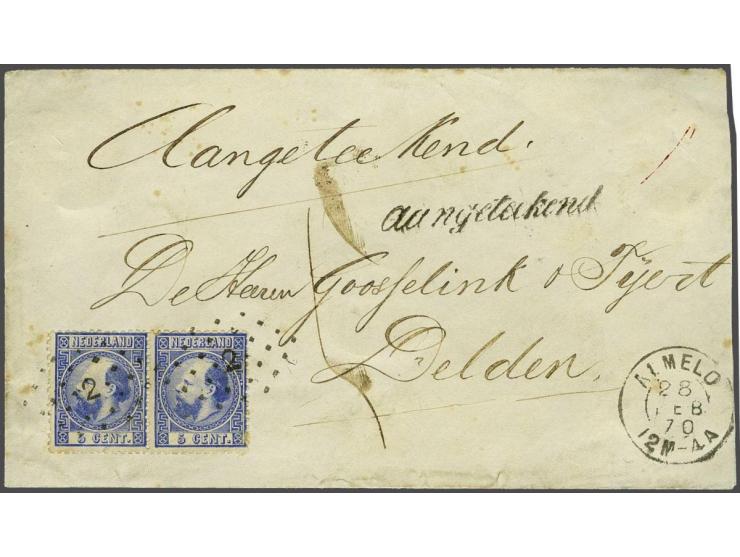 Aangeteekend.
aangeteekend
De Heeren Goosselink &
Delden.
NEDERLAND NEDERLAND
2 2
5 CENT. 5 CENT.
ALMELO
28
FEB
70
12M-4A